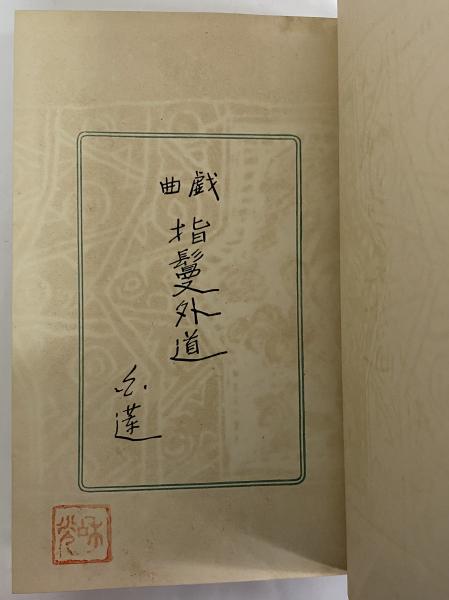 戯曲
指鬘外道
白蓮